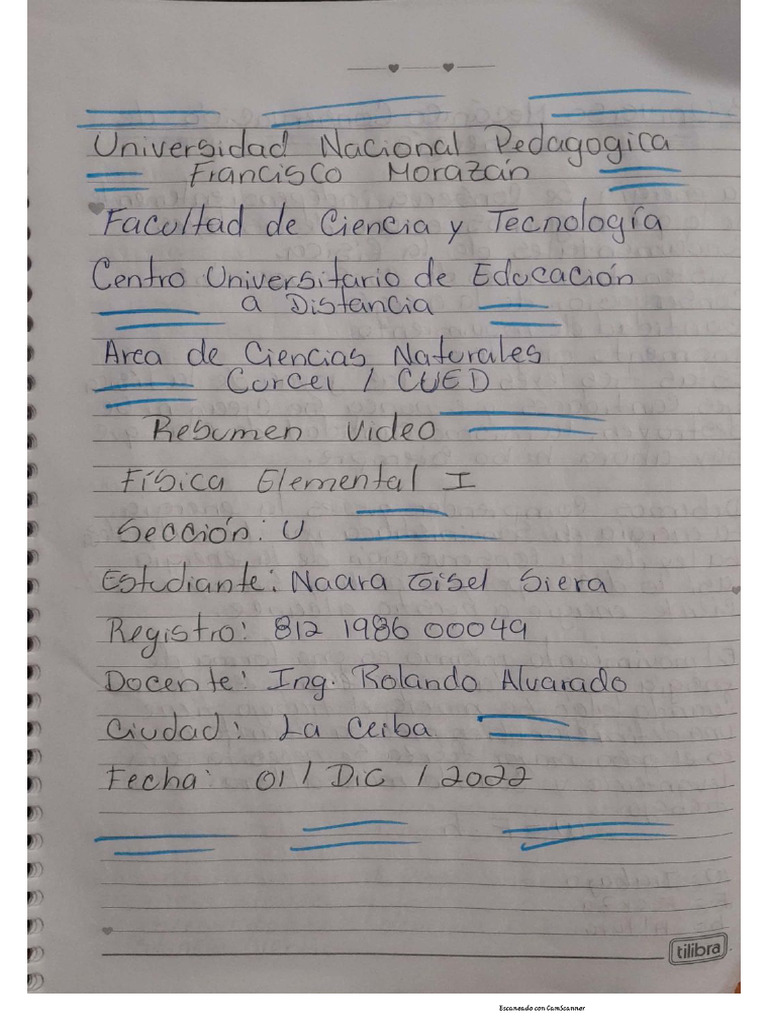 Universidad Nacional Pedagogica
Francisco Morazán
Facultad de Ciencia y Tecnología
Centro Universitario de Educación
a Distancia
Area de Ciencias Naturales
Curcei / CUED
Resumen Video
Física Elemental I
Sección: U
Estudiante: Naara Gisel Siera
Registro: 812 1986 00049
Docente: Ing. Rolando Alvarado
Ciudad: La Ceiba
Fecha: 01 / Dic / 2022
tilibra
Escaneado con CamScanner